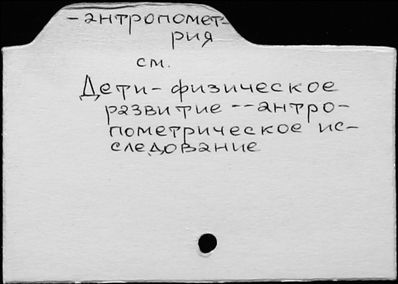 -антропомет-
рия
см.
Дети-физическое
развитие--антро-
пометрическое ис-
следование